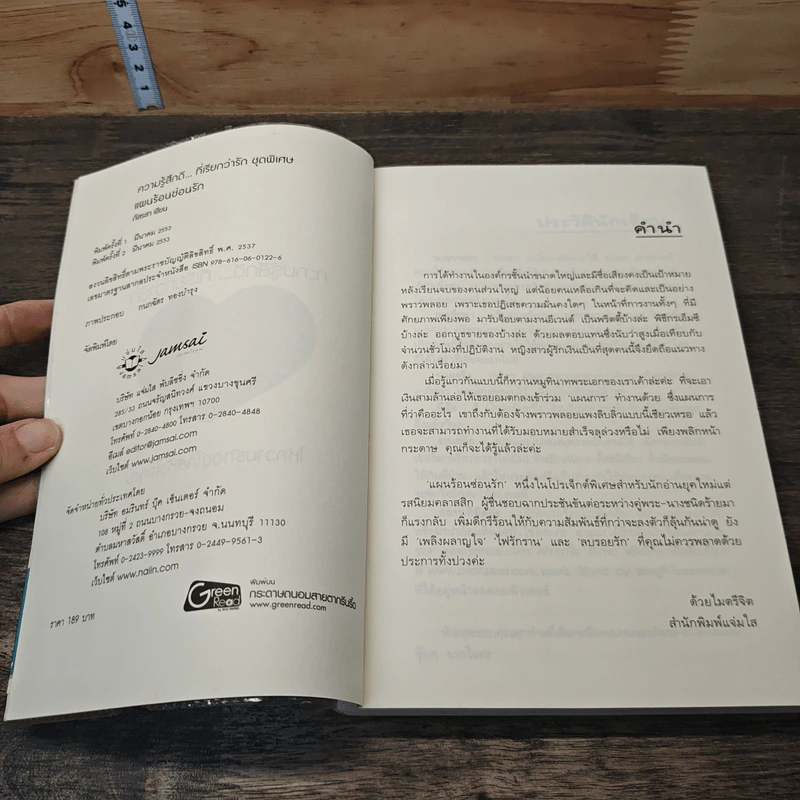 5
4
3
2
1
ความรู้สึกดี... ที่เรียกว่ารัก ชุดพิเศษ
แผนร้อนซ่อนรัก
ภัสรสา เขียน
พิมพ์ครั้งที่ 1 มีนาคม 2553
พิมพ์ครั้งที่ 2 มีนาคม 2553
สงวนลิขสิทธิ์ตามพระราชบัญญัติลิขสิทธิ์ พ.ศ. 2537
เลขมาตรฐานสากลประจำหนังสือ ISBN 978-616-06-0122-6
ภาพประกอบ กนกฉัตร ทองบำรุง
จัดพิมพ์โดย
jamsai
บริษัท แจ่มใส พับลิชชิ่ง จำกัด
285/33 ถนนจรัญสนิทวงศ์ แขวงบางขุนศรี
เขตบางกอกน้อย กรุงเทพฯ 10700
โทรศัพท์ 0-2840-4800 โทรสาร 0-2840-4848
อีเมล์ editor@jamsai.com
เว็บไซต์ www.jamsai.com
จัดจำหน่ายทั่วประเทศโดย
บริษัท อมรินทร์ บุ๊ค เซ็นเตอร์ จำกัด
108 หมู่ที่ 2 ถนนบางกรวย-จงถนอม
ตำบลมหาสวัสดิ์ อำเภอบางกรวย จ.นนทบุรี 11130
โทรศัพท์ 0-2423-9999 โทรสาร 0-2449-9561-3
เว็บไซต์ www.naiin.com
Green Read
พิมพ์บน
กระดาษถนอมสายตากรีนรี้ด
www.greenread.com
ราคา 189 บาท
คำนำ
การได้ทำงานในองค์กรชั้นนำขนาดใหญ่และมีชื่อเสียงคงเป็นเป้าหมาย
หลังเรียนจบของคนส่วนใหญ่ แต่น้อยคนเหลือเกินที่จะคิดและเป็นอย่าง
พราวพลอย เพราะเธอปฏิเสธความมั่นคงใดๆ ในหน้าที่การงานทั้งๆ ที่มี
ศักยภาพเพียงพอ มารับจ๊อบตามงานอีเวนต์ เป็นพริตตี้บ้างล่ะ พิธีกรเอ็มซี
บ้างล่ะ ออกบูธขายของบ้างล่ะ ด้วยผลตอบแทนซึ่งนับว่าสูงเมื่อเทียบกับ
จำนวนชั่วโมงที่ปฏิบัติงาน หญิงสาวผู้รักเงินเป็นที่สุดคนนี้จึงยึดถือแนวทาง
ดังกล่าวเรื่อยมา
เมื่อรู้แกวกันแบบนี้ก็หวานหมูทีนาทพระเอกของเราเค้าล่ะค่ะ ที่จะเอา
เงินสามล้านล่อให้เธอยอมตกลงเข้าร่วม 'แผนการ' ทำงานด้วย ซึ่งแผนการ
ที่ว่าคืออะไร เขาถึงกับต้องจ้างพราวพลอยแพงลิบลิ่วแบบนี้เชียวเหรอ แล้ว
เธอจะสามารถทำงานที่ได้รับมอบหมายสำเร็จลุล่วงหรือไม่ เพียงพลิกหน้า
กระดาษ คุณก็จะได้รู้แล้วล่ะค่ะ
'แผนร้อนซ่อนรัก' หนึ่งในโปรเจ็กต์พิเศษสำหรับนักอ่านยุคใหม่แต่
รสนิยมคลาสสิก ผู้ชื่นชอบฉากประชันขันต่อระหว่างคู่พระ-นางชนิดร้ายมา
ก็แรงกลับ เพิ่มดีกรีร้อนให้กับความสัมพันธ์ที่กว่าจะลงตัวก็ลุ้นกันน่าดู ยัง
มี 'เพลิงผลาญใจ' 'ไฟรักราน' และ 'ลบรอยรัก' ที่คุณไม่ควรพลาดด้วย
ประการทั้งปวงค่ะ
ด้วยไมตรีจิต
สำนักพิมพ์แจ่มใส